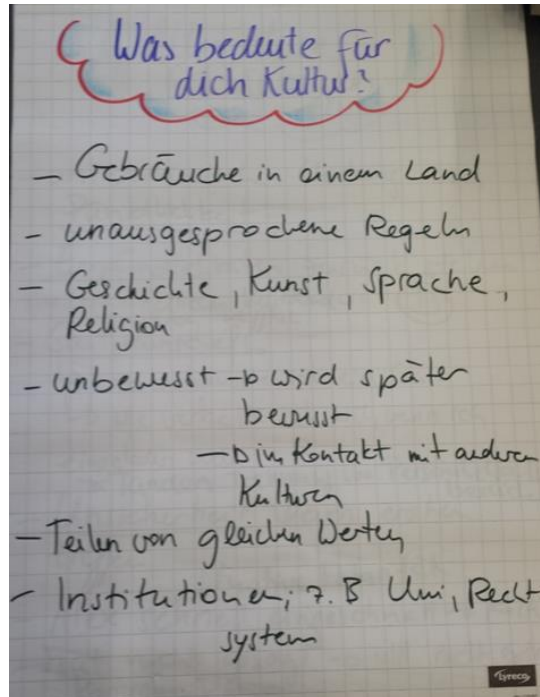 Was bedeute für
dich Kultur?
- Gebräuche in einem Land
- unausgesprochene Regeln
- Geschichte, Kunst, Sprache,
Religion
- unbewusst → wird später
bewusst
→ im Kontakt mit anderen
Kulturen
- Teilen von gleichen Werten
- Institutionen, z. B Uni, Recht
system
lyreco